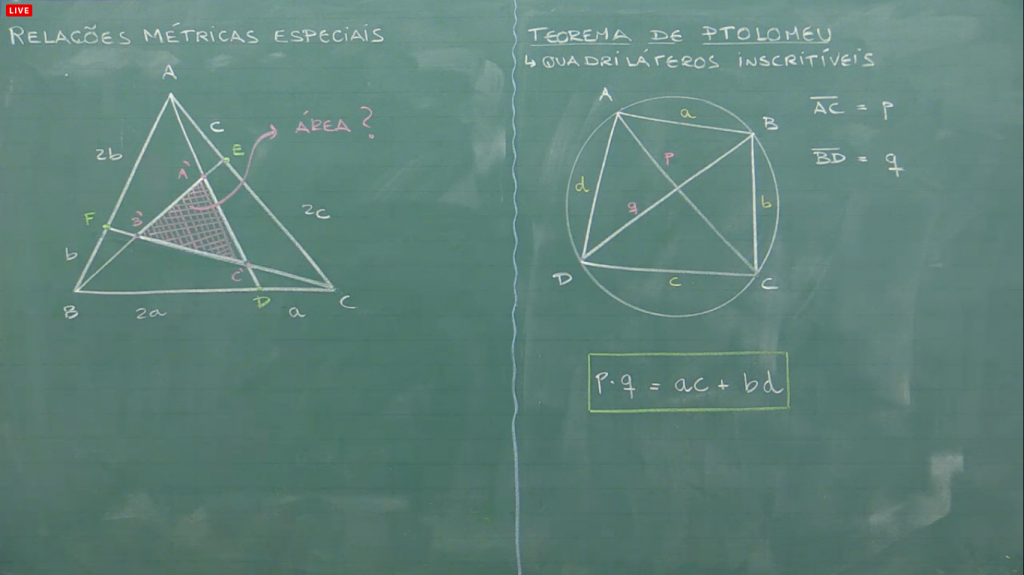 LIVE
RELAÇÕES MÉTRICAS ESPECIAIS
A
2b
c
E
ÁREA ?
A'
F
B'
2c
b
C'
B
2a
D
a
C
TEOREMA DE PTOLOMEU
↳ QUADRILÁTEROS INSCRITÍVEIS
A
a
B
p
d
q
b
D
c
C
AC = p
BD = q
p·q = ac + bd